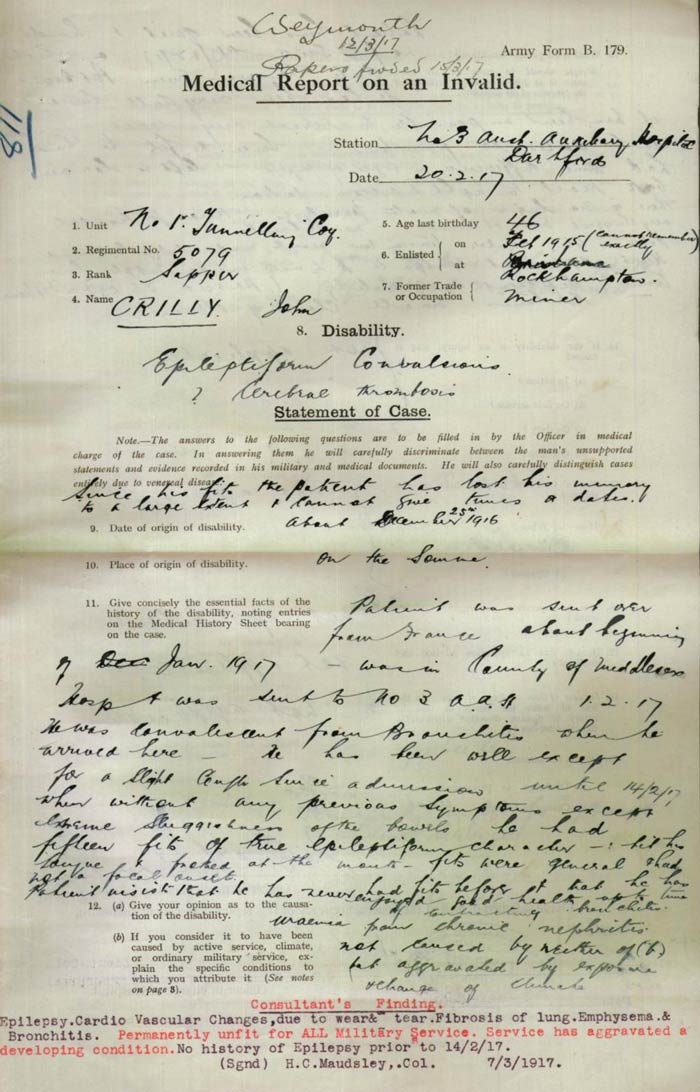 Weymouth
12/3/17
Papers fwded 13/3/17
Army Form B. 179.
Medical Report on an Invalid.
118
Station No 3 Aust. Auxiliary Hospital
Dartford
Date 20.2.17
1. Unit No 1r Tunnelling Coy.
2. Regimental No. 5079
3. Rank Sapper
4. Name CRILLY. John
5. Age last birthday 46
6. Enlisted { on Feb 1915 (cannot remember exactly
at Rockhampton.
7. Former Trade or Occupation { Miner
8. Disability.
Epileptiform Convulsions.
? Cerebral thrombosis
Statement of Case.
Note.—The answers to the following questions are to be filled in by the Officer in medical
charge of the case. In answering them he will carefully discriminate between the man's unsupported
statements and evidence recorded in his military and medical documents. He will also carefully distinguish cases
entirely due to venereal disease.
Since his fits the patient has lost his memory
to a large extent & cannot give times or dates.
9. Date of origin of disability. About December 25th 1916
10. Place of origin of disability. On the Somme.
11. Give concisely the essential facts of the
history of the disability, noting entries
on the Medical History Sheet bearing
on the case.
Patient was sent over
from France about beginning
of Dec Jan. 1917 – was in County of Middlesex
Hosp & was sent to No 3 A.A.H 1.2.17
He was convalescent from Bronchitis when he
arrived here – He has been well except
for a slight cough since admission until 14/2/17
when without any previous symptoms except
extreme sluggishness of the bowels he had
fifteen fits of true epileptiform character – : bit his
tongue & frothed at the mouth – fits were general & had
not a focal onset.
Patient insists that he has never had fits before & that he has
enjoyed good health up to time
of contracting bronchitis.
12. (a) Give your opinion as to the causa-
tion of the disability.
Uraemia from chronic nephritis
(b) If you consider it to have been
caused by active service, climate,
or ordinary military service, ex-
plain the specific conditions to
which you attribute it (See notes
on page 3).
not caused by neither of (b)
but aggravated by exposure
& change of climate
Consultant's Finding.
Epilepsy.Cardio Vascular Changes,due to wear& tear.Fibrosis of lung.Emphysema.&
Bronchitis. Permanently unfit for ALL Military Service. Service has aggravated a
developing condition.No history of Epilepsy prior to 14/2/17.
(Sgnd) H.C.Maudsley,.Col. 7/3/1917.